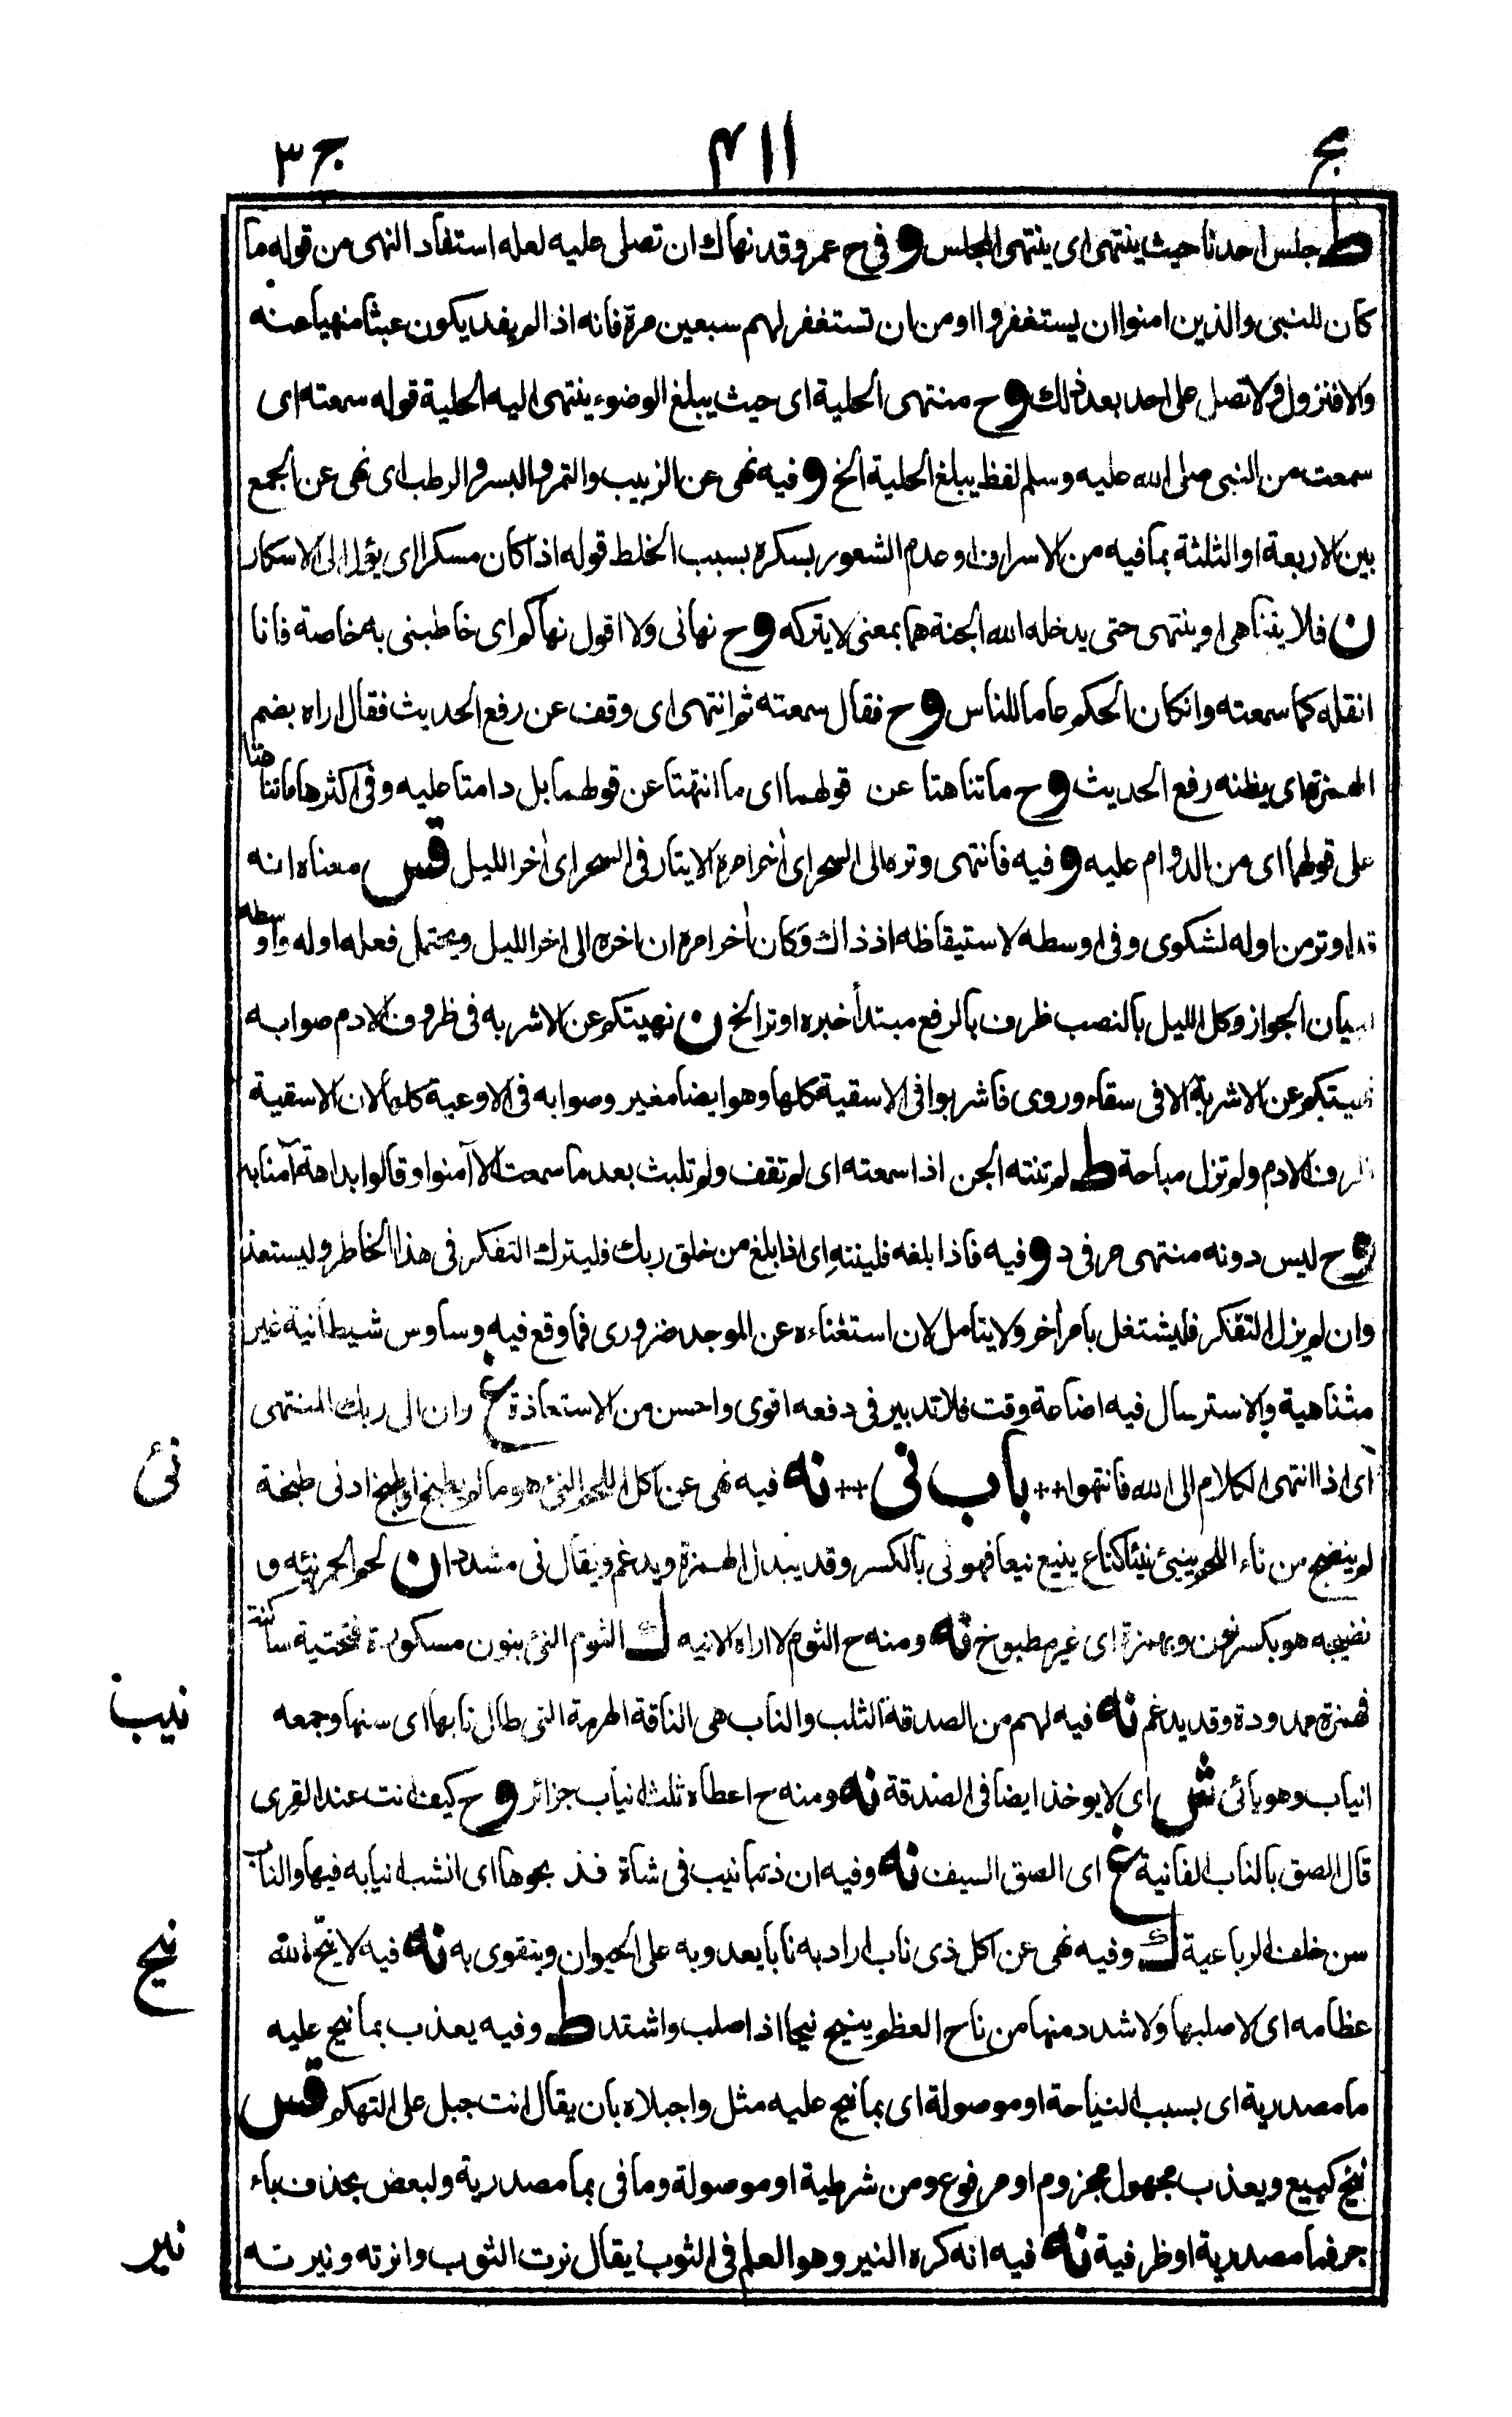 مج ٤١١ ج ٣
ط جلس احدنا حيث ينتهى اى ينتهى المجلس و فى ح عمر وقد نهاك ان تصلى عليه لعله استفاد النهى من قوله ما
كان للنبى والذين امنوا ان يستغفروا او من ان تستغفر لهم سبعين مرة فانه اذا لم يفد يكون عبثا منهيا عنه
والا فنزول ولا تصل على احد بعد ذلك و ح منتهى الحلية اى حيث يبلغ الوضوء ينتهى اليه الحلية قوله سمعته اى
سمعت من النبى صلى الله عليه وسلم لفظ يبلغ الحلية الخ و فيه نهى عن الزبيب والتمر والبسر والرطب اى نهى عن الجمع
بين الاربعة او الثلثة بما فيه من الاسراف او عدم الشعور بسكره بسبب الخلط قوله اذا كان مسكرا اى يؤل الى الاسكار
ن فلا يتناهى او ينتهى حتى يدخله الله الجنة هما بمعنى لا يتركه و ح نهانى ولا اقول نهاكم اى خاطبنى به خاصة فانا
انقله كما سمعته وانكان الحكم عاما للناس و ح فقال سمعته ثم انتهى اى وقف عن رفع الحديث فقال اراه بضم
الهمزة اى يظنه رفع الحديث و ح ما تناهتا عن قولهما اى ما انتهتا عن قولهما بل دامتا عليه وفى اكثرها ماتناهتا
على قولهما اى من الدوام عليه و فيه فانتهى وتره الى السحر اى اخر امره الايتار فى السحر اى اخر الليل قس معناه انه
قد اوتر من اوله لشكوى وفى اوسطه لاستيقاظه اذ ذاك وكان اخر امره ان اخره الى اخر الليل ويحتمل فعله اوله واوسطه
لبيان الجواز وكل الليل بالنصب ظرف بالرفع مبتدأ خبره اوتر الخ ن نهيتكم عن الاشربه فى ظروف الادم صوابه
نهيتكم عن الاشربة الا فى سقاء وروى فاشربوا فى الاسقية كلها وهو ايضا مغير وصوابه فى الاوعية كلها لان الاسقية
ظروف الادم ولم تزل مباحة ط لم تنته الجن اذا سمعته اى لم تقف ولم تلبث بعد ما سمعت الا آمنوا وقالوا بداهة آمنا به
و ح ليس دونه منتهى مر فى د و فيه فاذا بلغه فلينتهِ اى اذا بلغ من خلق ربك فليترك التفكر فى هذا الخاطر وليستعذ
وان لم يزل التفكر فليشتغل بامر آخر ولا يتامل لان استغناءه عن الموجد ضرورى فما وقع فيه وساوس شيطانية غير
متناهية والاسترسال فيه اضاعة وقت فلا تدبير فى دفعه اقوى واحسن من الاستعاذة غ وان الى ربك المنتهى
اى اذا انتهى الكلام الى الله فانتهوا ++ باب نى ++ نه فيه نهى عن اكل اللحم النئ هو ما لم يطبخ او طبخ ادنى طبخة
لم ينضج من ناء اللحم ينيئ نيئا كناع ينيع نيعا فهو نئ بالكسر وقد يبدل الهمزة ويدغم ويقال نى مشددا ن لحم الحمر نيئه و
نضيجه هو بكسر نون وبهمزة اى غير مطبوخ نه ومنه ح الثوم لا اراه الا نيه ك الثوم النئ بنون مسكورة فتحتية ساكنة
فهمزة ممدودة وقد يدغم نه فيه لهم من الصدقة الثلب والناب هى الناقة الهرمة التى طال نابها اى سنها وجمعه
انياب وهو يائى ش اى لا يوخذ ايضا فى الصدقة نه ومنه ح اعطاه ثلثة انياب جزائر و ح كيف انت عند القِرى
قال الصق بالناب الفانية غ اى الصق السيف نه وفيه ان ذئبا نيب فى شاة فذبحوها اى انشب انيابه فيها والناب
سن خلف الرباعية ك وفيه نهى عن اكل ذى ناب اراد به نابا يعدو به على الحيوان ويتقوى به نه فيه لا نيّح الله
عظامه اى لا صلبها ولا شدد منها من ناح العظم ينيح نيحا اذا صلب واشتد ط وفيه يعذب بما نيح عليه
ما مصدرية اى بسبب النياحة او موصولة اى بما نيح عليه مثل واجبلاه بان يقال انت جبل على التهكم قس
نيح كبيع ويعذب مجهول مجزوم او مرفوع ومن شرطية او موصولة وما فى بما مصدرية ولبعض بحذف باء
جر فما مصدرية او ظرفية نه فيه انه كره النير وهو العلم فى الثوب يقال نرت الثوب وانرته ونيرته
نئ
نيب
نيح
نير